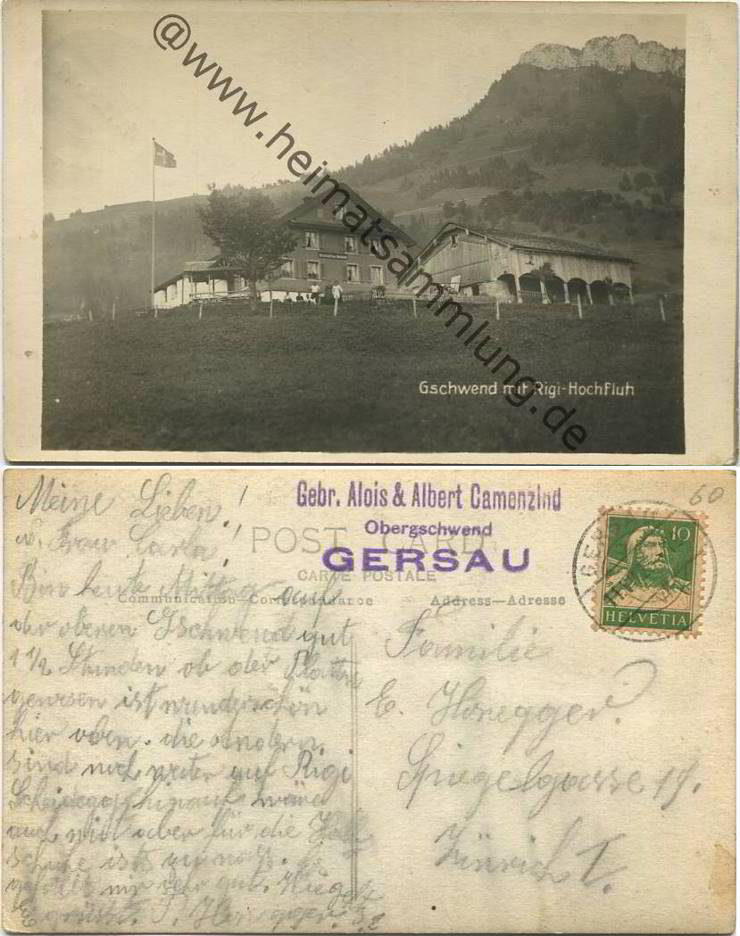 @www.heimatsammlung.de
Gschwend mit Rigi-Hochfluh
Meine Lieben!
u. Frau Carla!
Bin heute Mittag auf
der oberen Gschwend gut
1 1/2 Stunden ob der
ist wunderschön
hier oben. die andern
sind noch weiter auf Rigi
Scheidegg hinauf wäre
auch mit aber für die
schuhe ists zu nass. es
gefällt mir sehr gut.
grüsst. Honegger.
Gebr. Alois & Albert Camenzind
Obergschwend
GERSAU
POST CARD
CARTE POSTALE
Communication—Correspondance
Address—Adresse
60
10
HELVETIA
Familie
E. Honegger.
Spiegelgasse 19.
Zürich I.